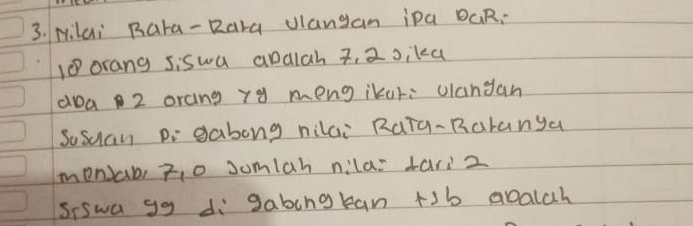 3. Nilai Rata-Rata Ulangan ipa DaRi
18 orang siswa adalah 7,2 jika
ada 2 orang yg mengikuti ulangan
susulan Di gabong nilai Rata-Ratanya
menjabi 7,0 Jumlah nilai dari 2
siswa yg di gabungkan tsb adalah